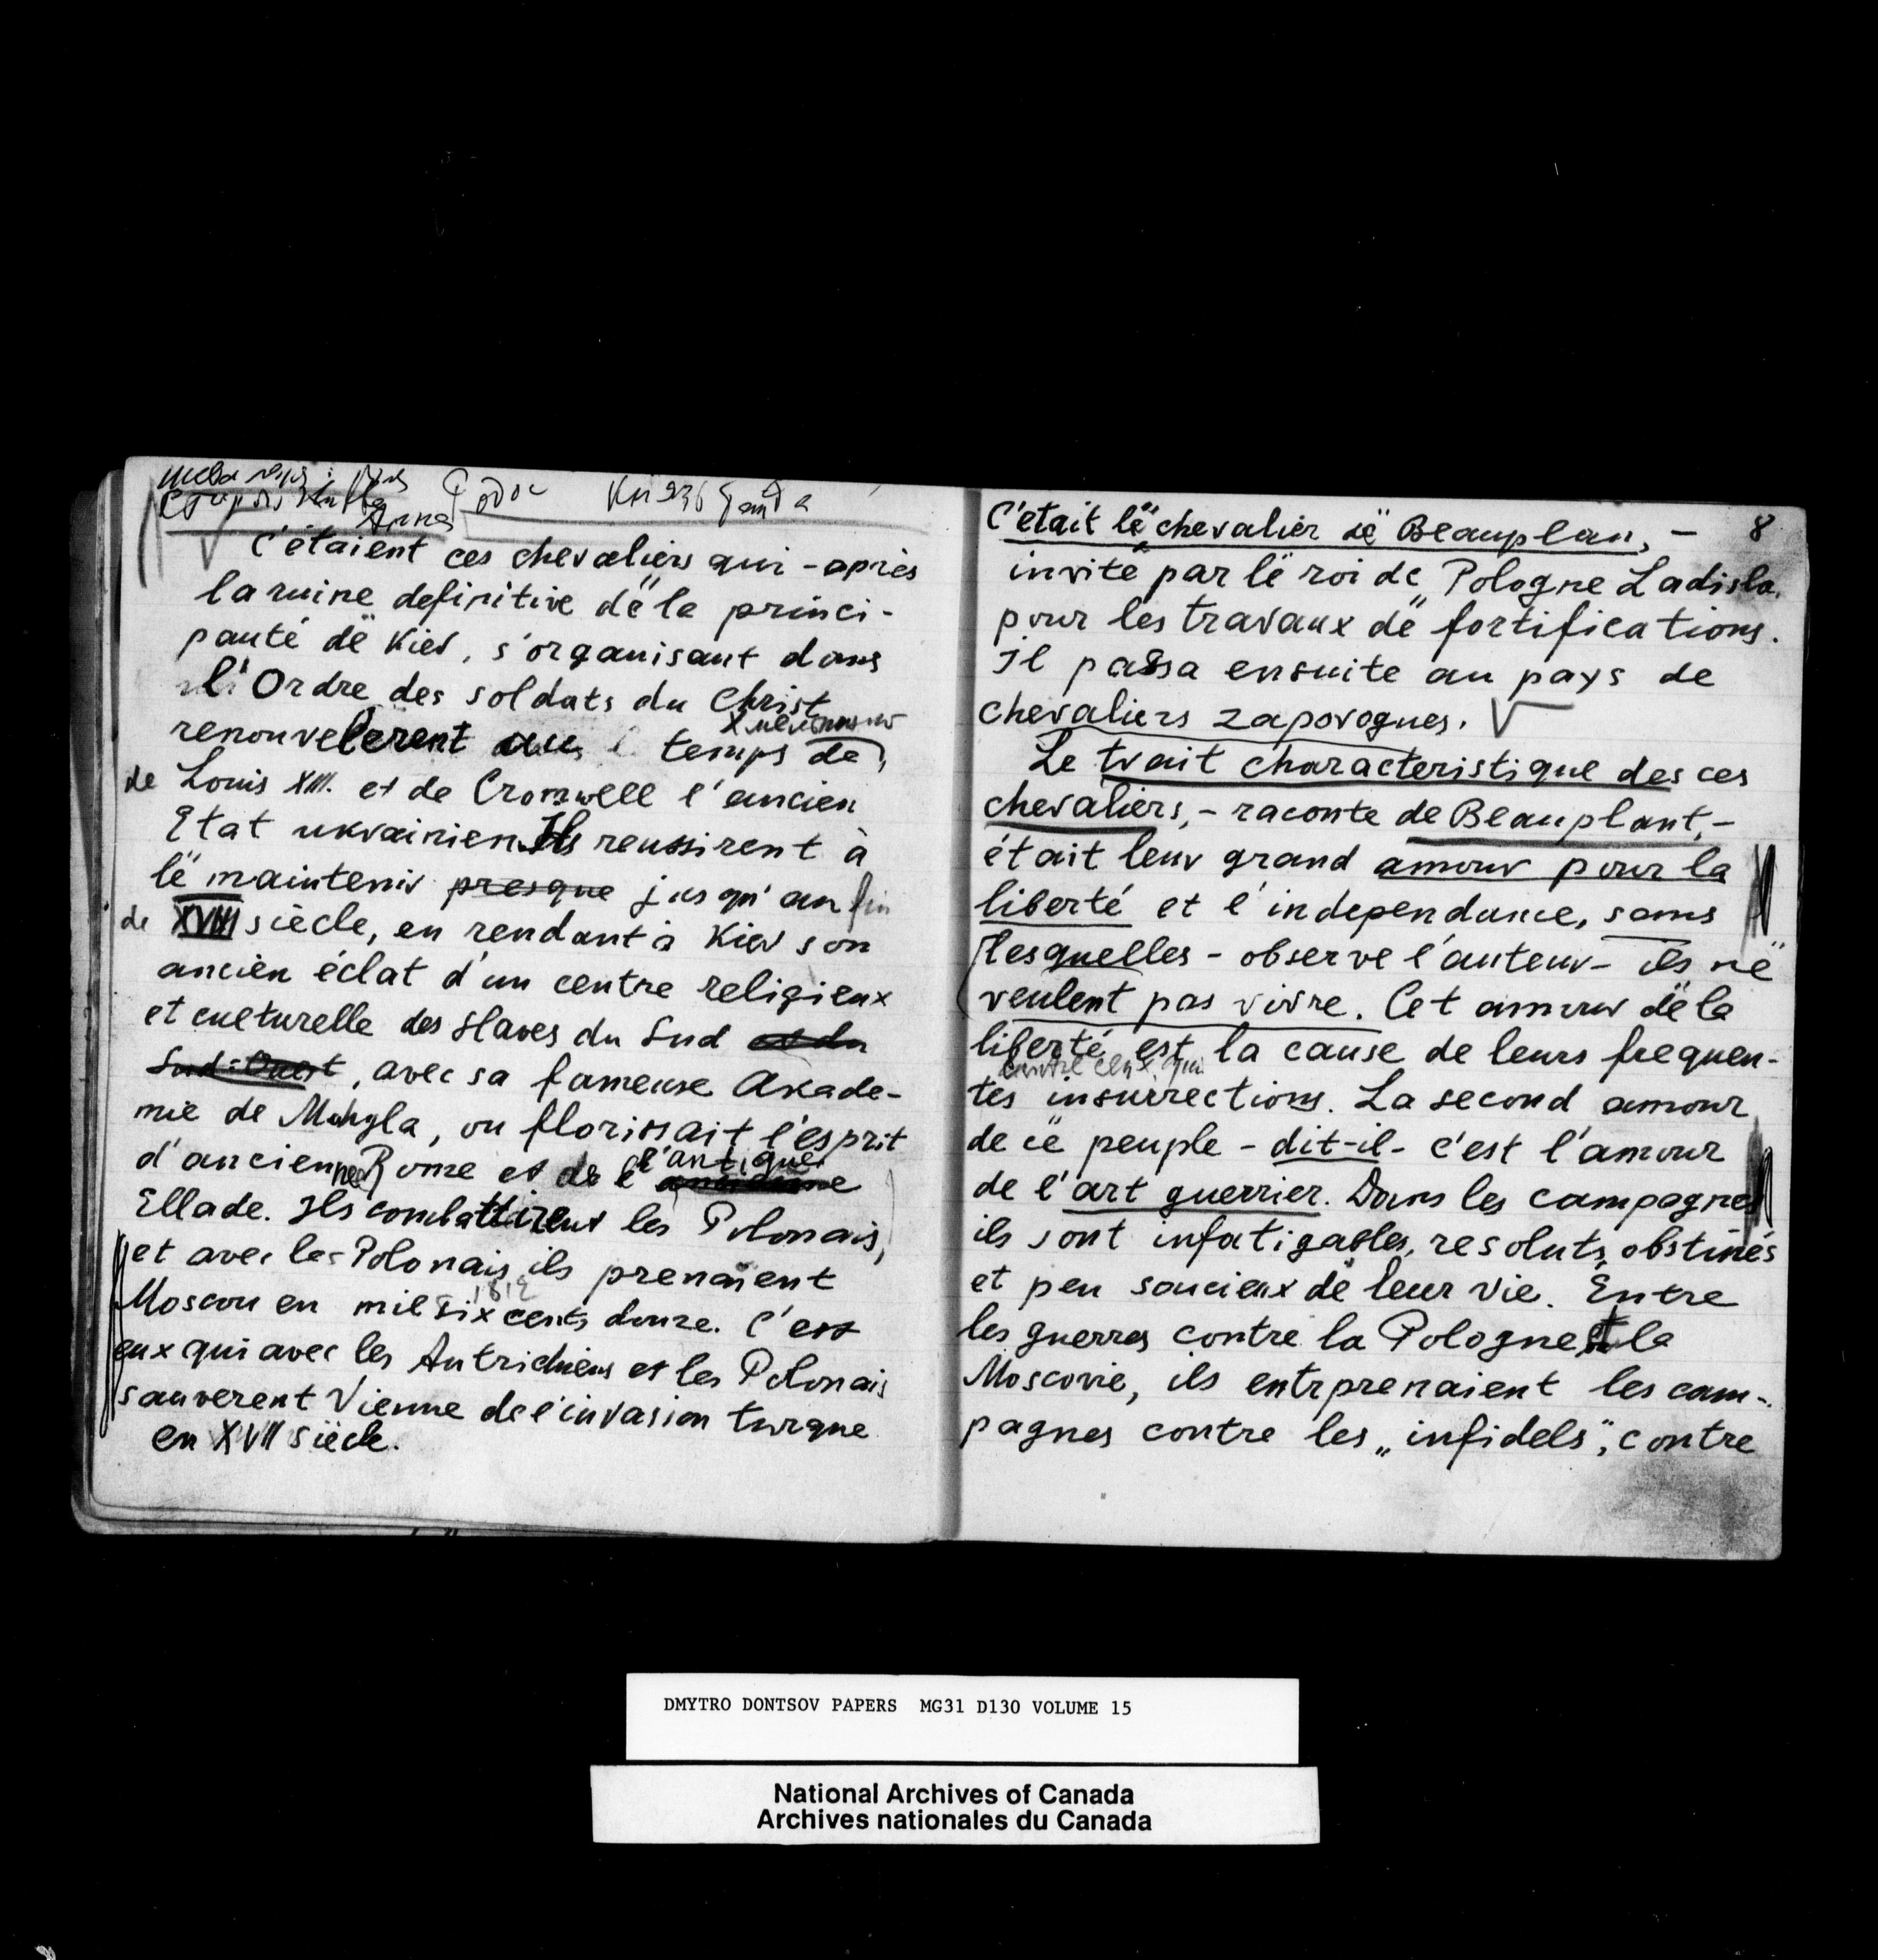 Анна
C'étaient ces chevaliers qui - après
la ruine definitive dë la princi-
pauté dë Kiev, s'organisant dans
l'Ordre des soldats du Christ
renouvelerent au temps de,
de Louis XIII. et de Cromwell l'ancien
Etat ukrainien. Ils reussirent à
lë maintenir presque jusqu'au fin
de XVIII siècle, en rendant à Kiev son
ancien éclat d'un centre religieux
et culturelle des slaves du Sud et du
Sud-Ouest, avec sa fameuse Akade-
mie de Mohyla, ou florissait l'esprit
d'ancienne Rome et de l'antique
Ellade. Ils combattirent les Polonais,
et avec les Polonais ils prenaient
1612
Moscou en mil six cents douze. C'est
eux qui avec les Autrichiens et les Polonais
sauverent Vienne de l'invasion turque
en XVII siècle.
8
C'était lë chevalier dë Beauplan, -
invité par lë roi de Pologne Ladisla.
pour les travaux dë fortifications.
Il passa ensuite au pays de
chevaliers zaporogues. V
Le trait characteristique des ces
chevaliers, - raconte de Beauplant, -
était leur grand amour pour la
liberté et l'independance, sans
lesquelles - observe l'auteur - ils në
veulent pas vivre. Cet amour dë la
liberté est la cause de leurs frequen-
contre ceux qui
tes insurrections. La second amour
de cë peuple - dit-il - c'est l'amour
de l'art guerrier. Dans les campagnes
ils sont infatigables, resoluts, obstinés
et peu soucieux dë leur vie. Entre
les guerres contre la Pologne et la
Moscovie, ils entrprenaient les cam-
pagnes contre les „infidels", contre
DMYTRO DONTSOV PAPERS MG31 D130 VOLUME 15
National Archives of Canada
Archives nationales du Canada